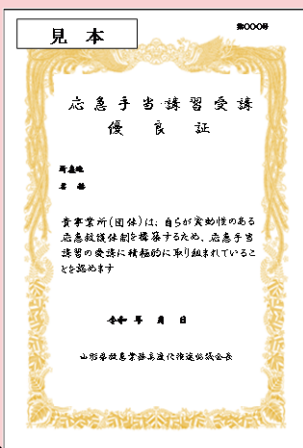 見本
第〇〇〇号
応急手当講習受講
優良証
所在地
名称
貴事業所(団体)は、自らが実効性のある
応急救護体制を構築するため、応急手当
講習の受講に積極的に取り組まれているこ
とを認めます
令和 年 月 日
山形県救急業務高度化推進協議会長